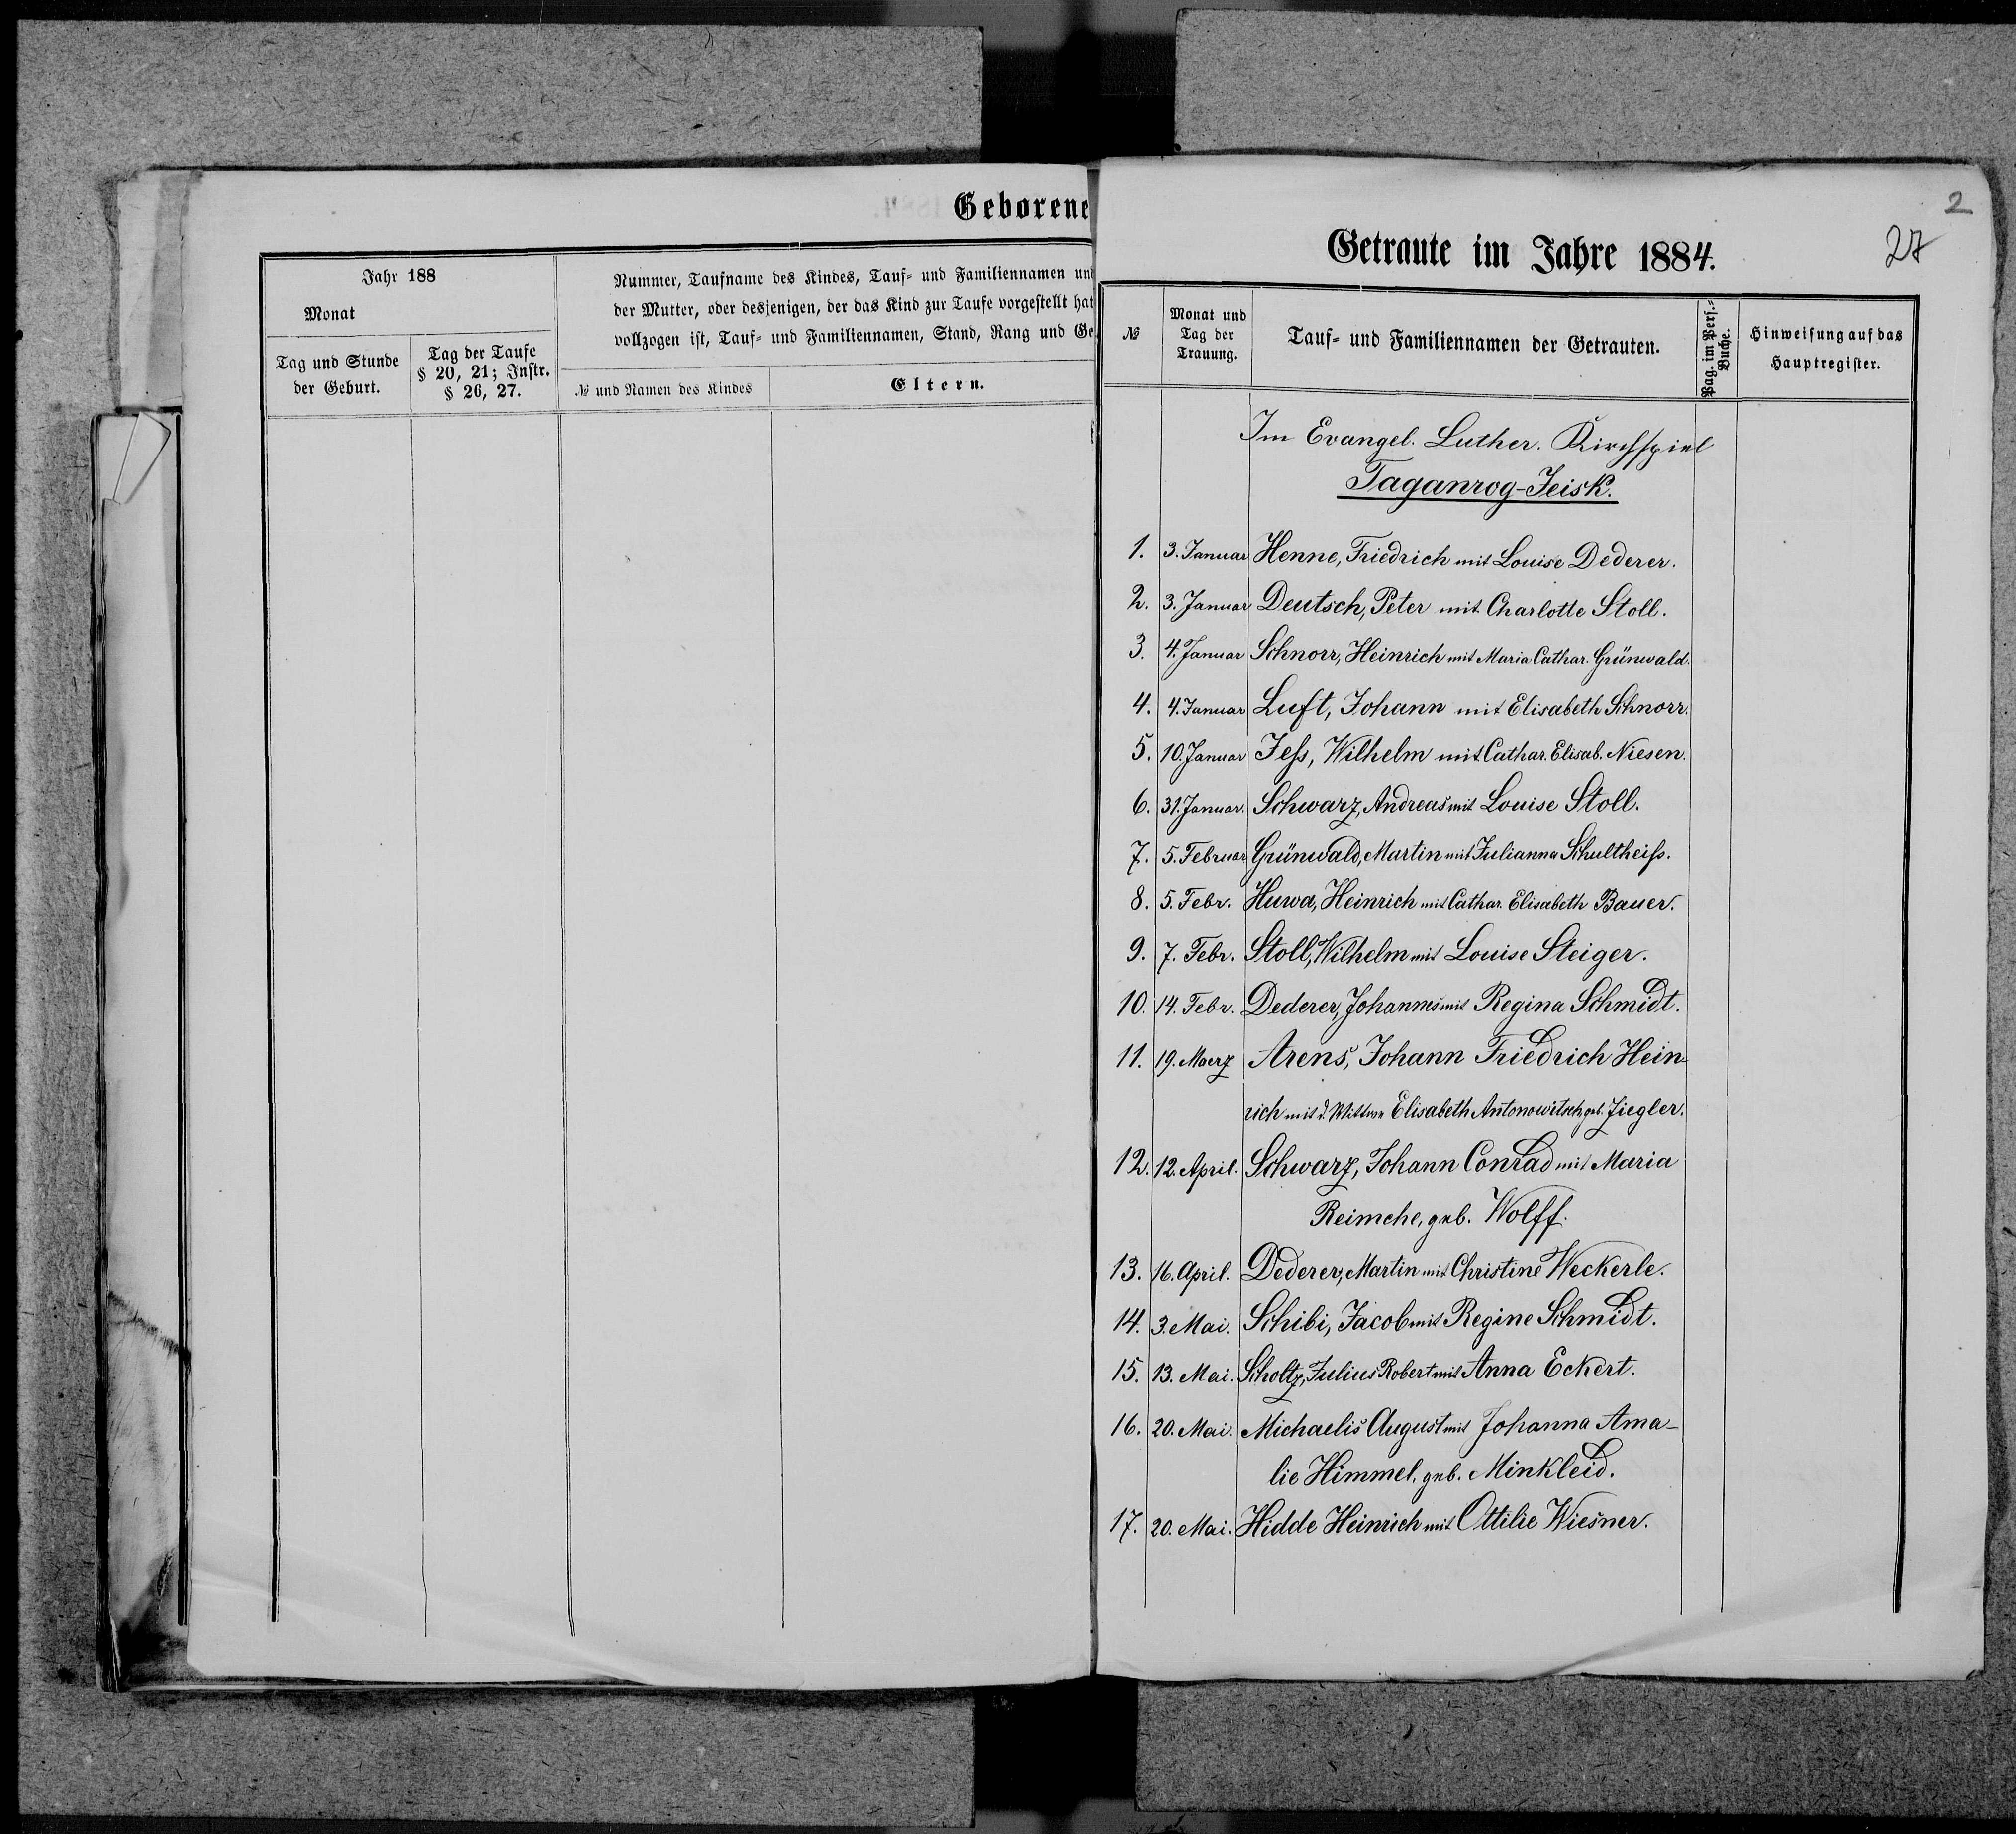 Geborene
Jahr 188
Monat
Tag und Stunde
der Geburt.
Tag der Taufe
§ 20, 21; Instr.
§ 26, 27.
Nummer, Taufname des Kindes, Tauf- und Familiennamen und
der Mutter, oder desjenigen, der das Kind zur Taufe vorgestellt hat
vollzogen ist, Tauf- und Familiennamen, Stand, Rang und Ge
№ und Namen des Kindes
Eltern.
2
27
Getraute im Jahre 1884.
№
Monat und
Tag der
Trauung.
Tauf- und Familiennamen der Getrauten.
Pag. im Pers.-
Buche.
Hinweisung auf das
Hauptregister.
Im Evangel. Luther. Kirchspiel
Taganrog-Jeisk.
1. 3. Januar Henne, Friedrich mit Louise Dederer.
2. 3. Januar Deutsch, Peter mit Charlotte Stoll.
3. 4. Januar Schnorr, Heinrich mit Maria Cathar. Grünwald.
4. 4. Januar Luft, Johann mit Elisabeth Schnorr.
5. 10. Januar Jeſs, Wilhelm mit Cathar. Elisab. Niesen.
6. 31. Januar. Schwarz, Andreas mit Louise Stoll.
7. 5. Februar Grünwald, Martin mit Julianna Schultheiſs.
8. 5. Febr. Huwa, Heinrich mit Cathar. Elisabeth Bauer.
9. 7. Febr. Stoll, Wilhelm mit Louise Steiger.
10. 14. Febr. Dederer, Johannes mit Regina Schmidt.
11. 19. Maerz Arens, Johann Friedrich Hein-
rich mit d. Wittwe Elisabeth Antonowitsch geb. Ziegler.
12. 12. April. Schwarz, Johann Conrad mit Maria
Reimche, geb. Wolff.
13. 16. April. Dederer, Martin mit Christine Weckerle.
14. 3. Mai. Schibi, Jacob mit Regine Schmidt.
15. 13. Mai. Scholtz, Julius Robert mit Anna Eckert.
16. 20. Mai. Michaelis August mit Johanna Ama-
lie Himmel, geb. Minkleid.
17. 20. Mai. Hidde Heinrich mit Ottilie Wiesner.